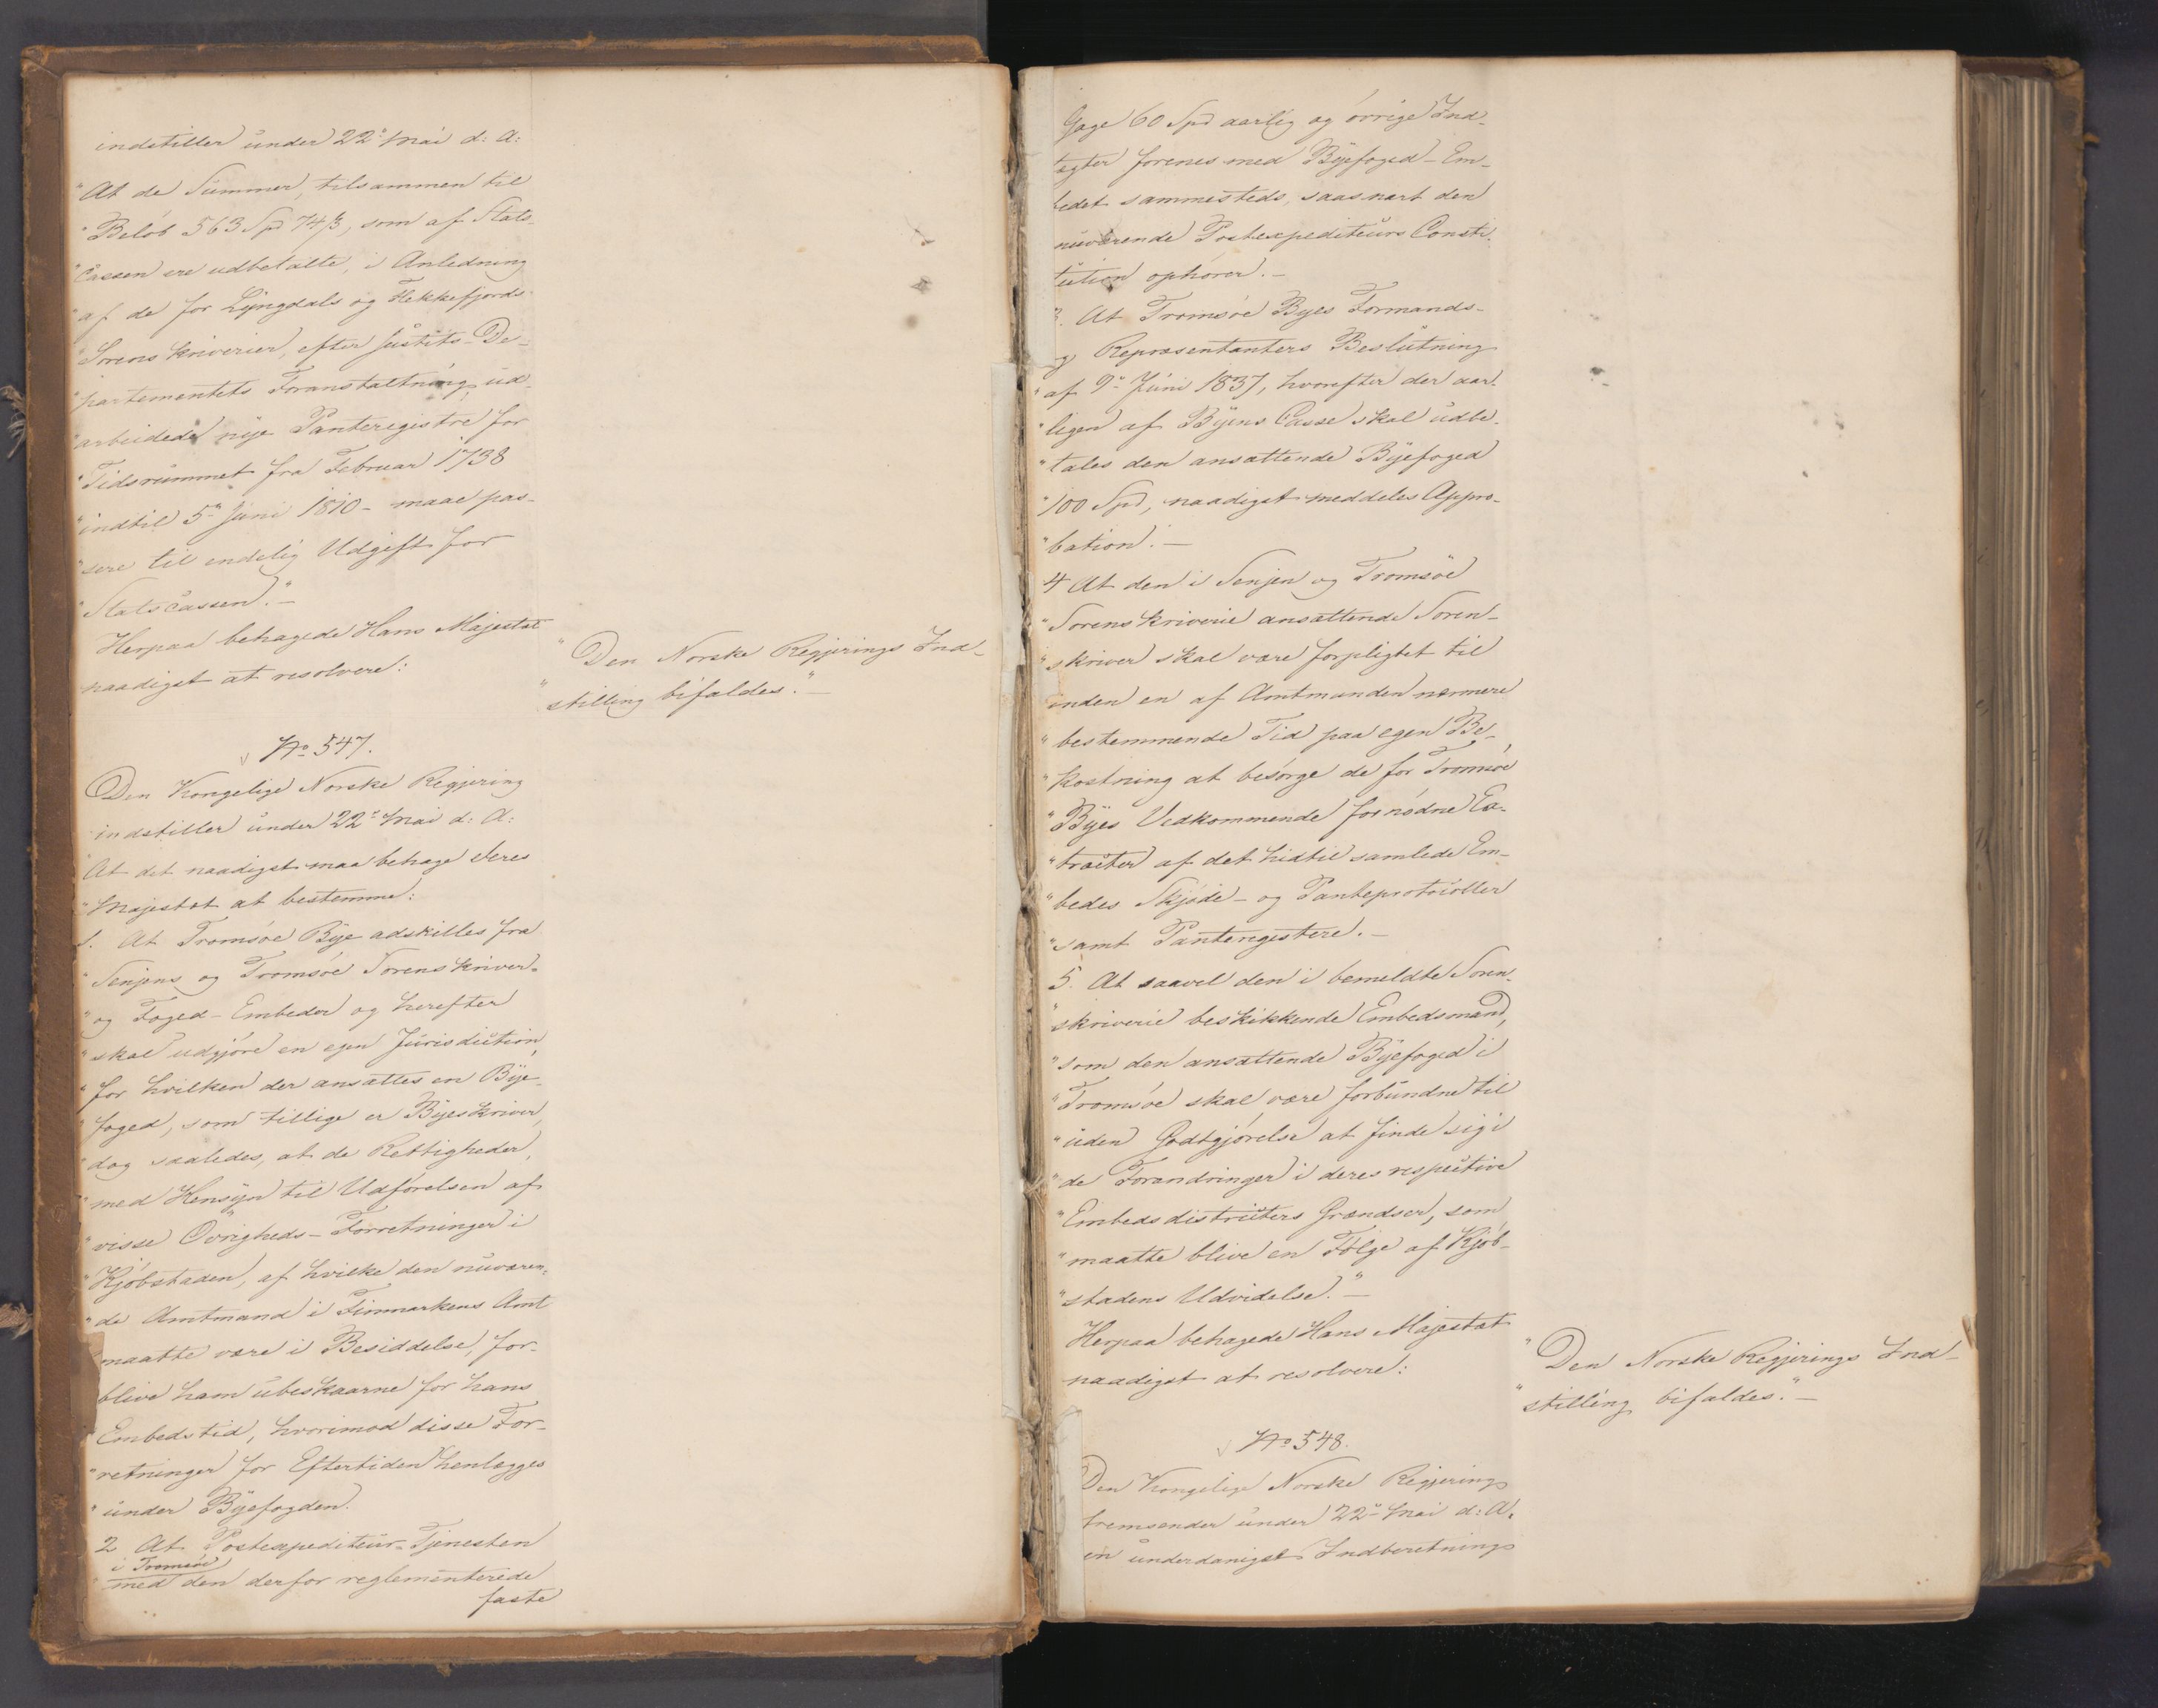 indstiller under 22de Mai d: A:
"At de Summer, tilsammen til
"Beløb 563 Spd 74 ß, som af Stats-
"Cassen ere udbetalte, i Anledning
"af de for Lyngdals og Flekkefjords
"Sorenskriverier, efter Justits-De-
"partementets Foranstaltning, ud-
"arbeidede nye Panteregistre for
"Tidsrummet fra Februar 1738
"indtil 5te Juni 1810 - maae pas-
"sere til endelig Udgift for
"Statscassen."-
Herpaa behagede Hans Majestæt
naadigst at resolvere:
"Den Norske Regjerings Ind-
"stilling bifaldes."-
No 547.
Den Kongelige Norske Regjering
indstiller under 22de Mai d: A:
At det naadigst maa behage Deres
"Majestæt at bestemme:
1. At Tromsøe Bye adskilles fra
"Senjens og Tromsøe Sorenskriver-
"og Foged-Embeder og herefter
"skal udgjøre en egen Jurisdiction,
"for hvilken der ansættes en Bye-
"foged, som tillige er Byeskriver,
"dog saaledes, at de Rettigheder,
"med Hensyn til Udførelsen af
"visse Øvrigheds-Forretninger i
"Kjøbstaden, af hvilke den nuværen-
"de Amtmand i Finmarkens Amt
maatte være i Besiddelse, for-
blive ham ubeskaarne for hans
Embedstid, hvorimod disse For-
"retninger for Eftertiden henlægges
"under Byefogden.
2 At Postexpediteur-Tjenesten
i Tromsøe
"med den derfor reglementerede
faste
Gage 60 Spd aarlig og øvrige Ind-
tægter forenes med Byefoged-Em-
bedet sammesteds, saasnart den
nuværende Postexpediteurs Consti-
tution ophører.-
3. At Tromsøe Byes Formands-
og Repræsentanters Beslutning
"af 9de Juni 1837, hvorefter der aar-
"ligen af Byens Casse skal udbe-
"tales den ansættende Byefoged
"100 Spd, naadigst meddeles Appro-
"bation.-
4 At den i Senjen og Tromsøe
"Sorenskriverie ansættende Soren-
"skriver skal være forpligtet til
inden en af Amtmanden nærmere
"bestemmende Tid paa egen Be-
"kostning at besørge de for Tromsøe
"Byes Vedkommende fornødne Ex-
"tracter af det hidtil samlede Em-
"bedes Skjøde- og Panteprotocoller
"samt Panteregistere.-
5. At saavel den i bemeldte Soren-
"skriverie beskikkende Embedsmand,
"som den ansættende Byefoged i
"Tromsøe skal være forbundne til
"uden Godtgjørelse at finde sig i
"de Forandringer i deres respective
"Embedsdistricters Grændser, som
"maatte blive en Følge af Kjøb-
"stadens Udvidelse."-
Herpaa behagede Hans Majestæt
naadigst at resolvere:
"Den Norske Regjerings Ind-
"stilling bifaldes."-
No 548.
Den Kongelige Norske Regjering
fremsender under 22de Mai d: A.
en underdanigst Indberetning